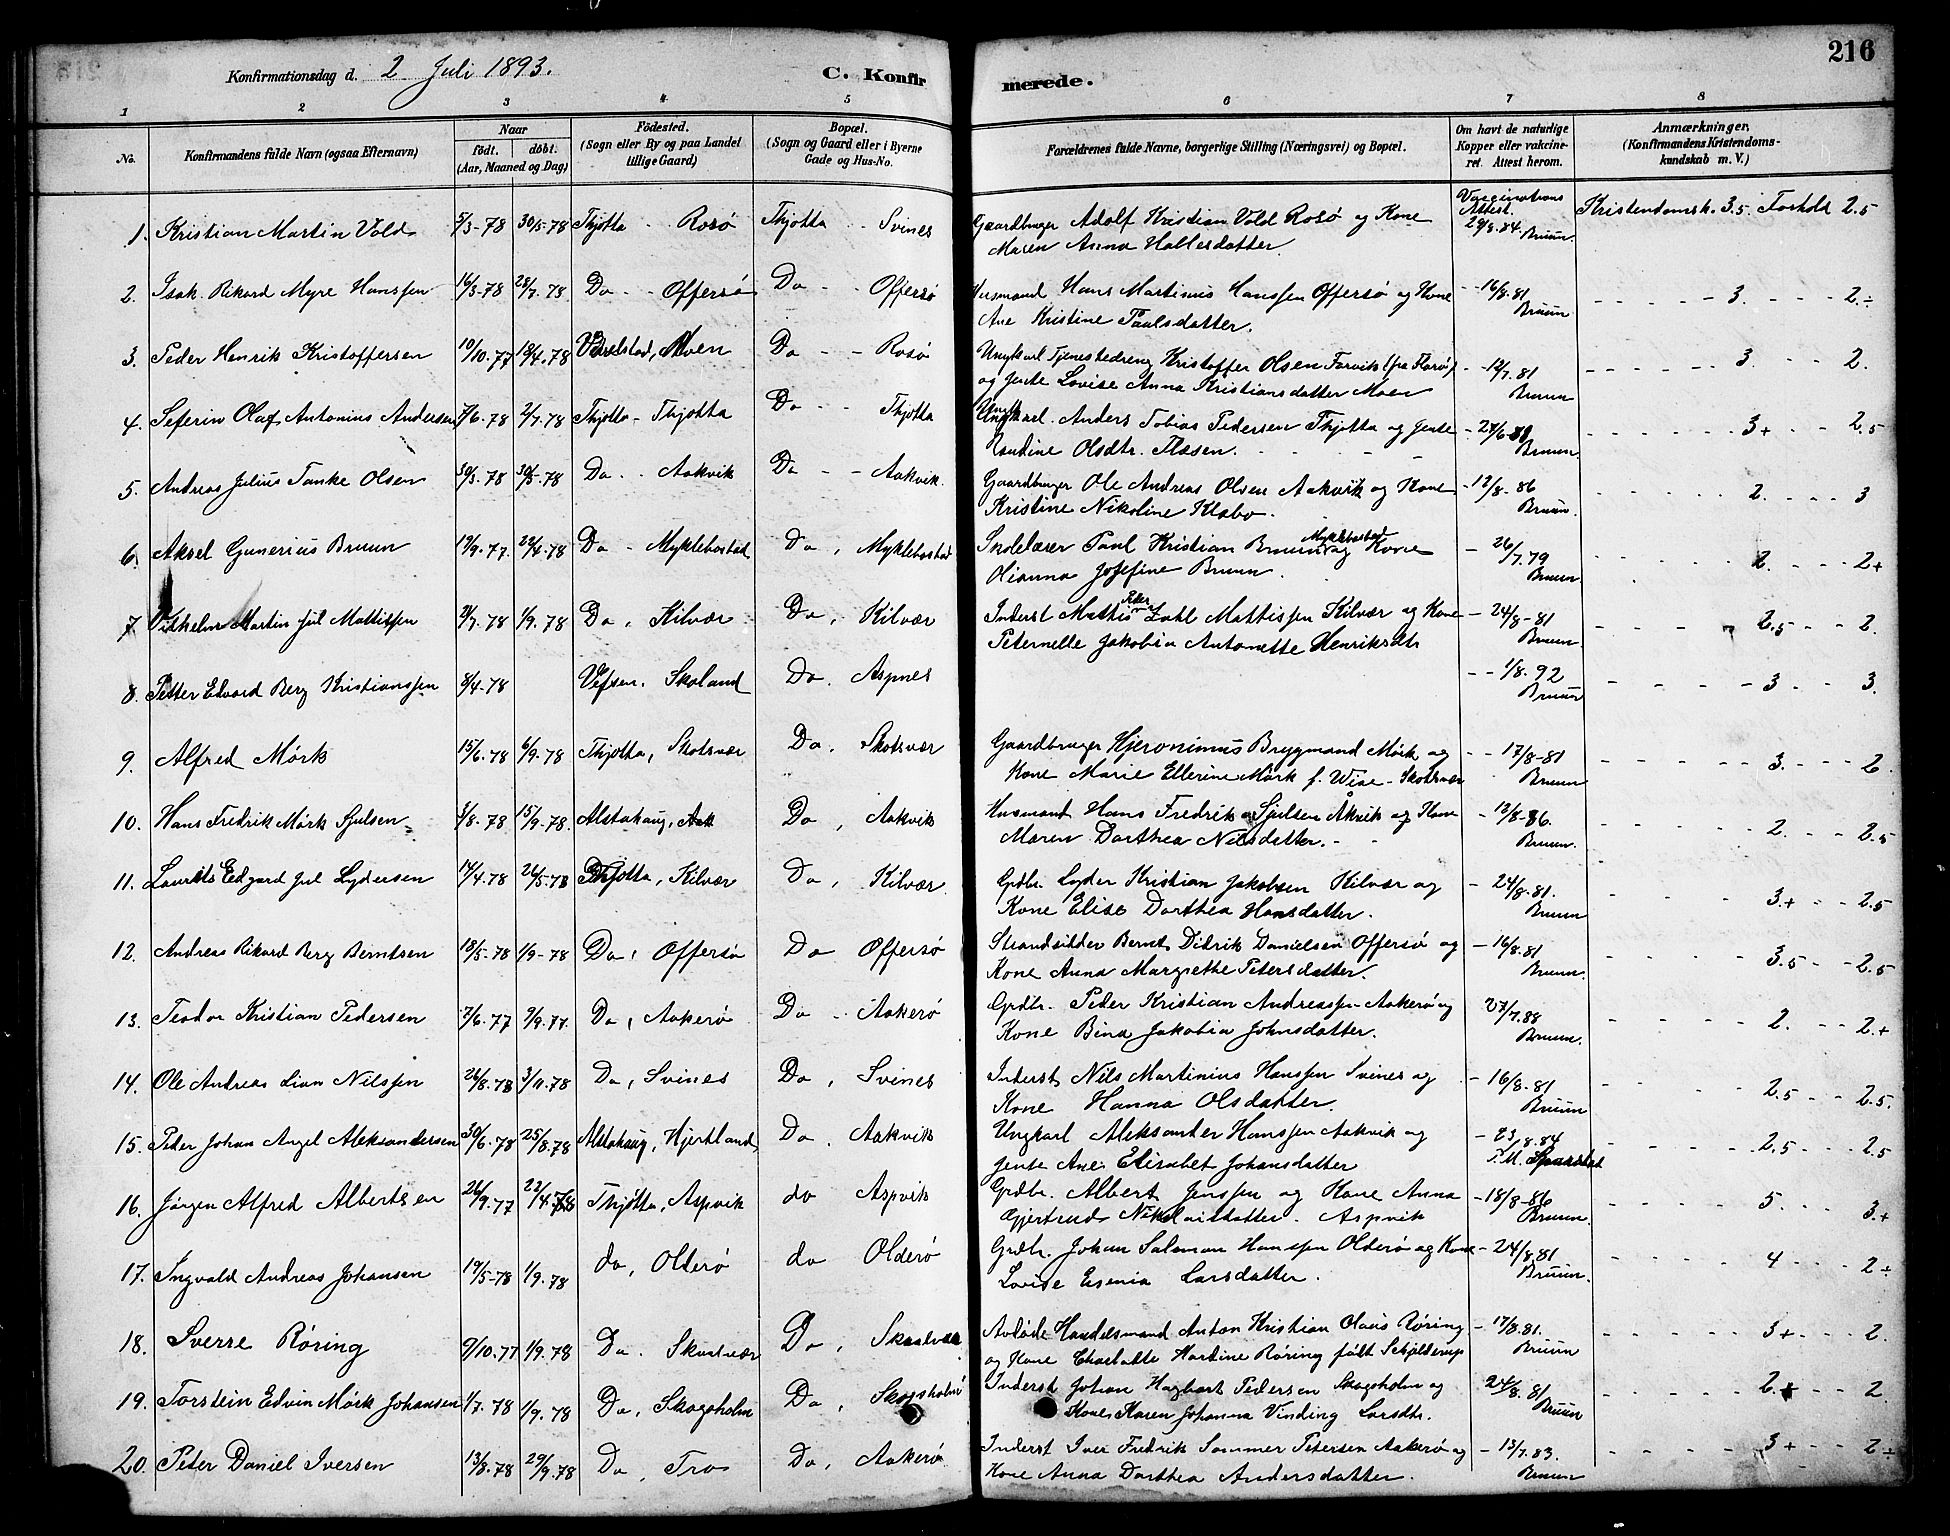 216
Konfirmationsdag d. 2 Juli 1893.
C. Konfirmerede.
1 2 3 4 5 6 7 8
No. Konfirmandens fulde Navn (ogsaa Efternavn) Naar födt. döbt. (Aar, Maaned og Dag) Födested. (Sogn eller By og paa Landet tillige Gaard) Bopæl. (Sogn og Gaard eller i Byerne Gade og Hus-No. Forældrenes fulde Navne, borgerlige Stilling (Næringsvei) og Bopæl. Om havt de naturlige Kopper eller vakcineret. Attest herom. Anmærkninger. (Konfirmandens Kristendomskundskab m. V.)
1. Kristian Martin Vold 5/3-78 30/5-78 Thjøtta - Rosø Thjøtta - Svines Gaardbruger Adolf Kristian Vold Rosø og Kone Vaccinations Attest. Kristendomsk. 3.5 Forhold 2.5
Maren Anna Hallesdatter. 29/8.84. Bruun.
2. Isak Rikard Myre Hanssen 16/3-78 28/7.78 Do - Offersø Do - Offersø Husmand Hans Martinus Hanssen Offersø og Kone 16/8.81 3. 2.÷
Ane Kristine Paulsdatter. Bruun
3. Peder Henrik Kristoffersen 10/10.77 19/4.78 Vevelstad, Moen Do - Rosø Ungkarl Tjenestedreng Kristoffer Olsen Forvik (fra Florø) 12/7.81 3 2.
og Jente Lovise Anna Kristiansdatter Moen Bruun
4. Seferin Olaf Antonius Andersen 7/6.78 2/7.78 Thjøtta - Thjøtta Do - Thjøtta Ungkarl. Anders Tobias Pedersen Thjøtta og Jente 27/6-81 3+ 2.5
Olsdtr. Bruun
5. Andreas Julius Tanke Olsen 30/3.78 30/5-78 Do - Aakvik Do - Aakvik Gaardbruger Ole Andreas Olsen Aakvik og Kone 12/8-86 2. 3
Kristine Nikoline Klæbo. Bruun.
6. Aksel Gunerius Bruun 19/9.77. 22/4.78 Do - Myklebostad Do, Myklebostad Skolelærer Paul Kristian Bruun Myklebostad og Kone 26/7.79 2. 2+
Olianna Josefine Bruun. Bruun
7. Vilhelm Martin Jul Mattissen 21/7.78 1/9.78 Do, Kilvær Do, Kilvær Inderst Mattis Peter Zahl Mattissen Kilvær og Kone 24/8-81 2.5 2.
Peternelle Jakobia Antonette Henriksdtr Bruun
8. Petter Edvard Berg Kristianssen 8/4-78 Vefsen. Skoland Do. Aspnes 1/8.92 3 3.
Bruun
9. Alfred Mørk 15/6.78 6/9.78 Thjøtta, Skotsvær Do, Skotsvær Gaardbruger Hjeronimus Brygmand Mørk og 17/8-81 3. 2.
Kone Marie Ellerine Mørk f. Wise - Skotsvær Bruun
10. Hans Fredrik Mørk Sjulsen 3/8.78 15/9-78. Alstahaug, Do, Aakvik Husmand Hans Fredrik Sjulsen Åkvik og Kone 12/8-86. 2. 2.5
Maren Dorthea Nilsdatter. Bruun.
11. Laurits Edgard Jul Lydersen 14/4.78 26/5.78 Thjøtta, Kilvær Do, Kilvær Grdbr. Lyder Kristian Jakobsen Kilvær og 24/8.81. 3.+ 2.5
Kone Elise Dorthea Hansdatter. Bruun
12. Andreas Rikard Berg Berntsen 18/5-78 1/9-78 Do, Offersø Do Offersø Strandsidder Bernt Didrik Danielsen Offersø og 16/8.81 3.5 2.5
Kone Anna Margrethe Petersdatter. Bruun.
13. Teodor Kristian Pedersen 7/6.77 2/9.77. Do, Aakerø Do - Aakerø Grdbr. Peder Kristian Andreassen Aakerø og 27/7.88 2. 2.+
Kone Bina Jakobia Johnsdatter. Bruun.
14. Ole Andreas Lian Nilssen 26/8.78 3/11.78 Do, Svines Do, Svines Inderst Nils Martinius Hanssen Svines og 16/8.81 2.5 2.5.
Kone Hanna Olsdatter. Bruun
15. Peder Johan Angel Aleksandersen 30/6.78 25/8.78 Alstahaug, Hjertland Do, Aakvik Ungkarl Aleksander Hanssen Aakvik og 23/8.84 2.5 2.5
Jente Ane Elisabet Johansdatter
16. Jørgen Alfred Albertsen 26/9.77 22/4.78 Thjøtta, Aspvik do Aspvik Grdbr. Albert Jenssen og Kone Anna 18/8-86 5. 3.+
Gjertrud Nikolaisdatter. Aspvik Bruun.
17. Ingvald Andreas Johansen 19/5-78 1/9.78 do, Olderø do Olderø Grdbr. Johan Salomon Hanssen Olderø og Kone 24/8.81 4 2÷
Lovise Esenia Larsdatter. Bruun.
18. Sverre Røring 9/10.77 1/9.78 Do. Skaalvær Do, Skaalvær Avdøde Handelsmand Anton Kristian Olaus Røring 17/8.81. 3+ 2.
og Kone Charlotte Martine Røring født Schjelderup Bruun
19. Torstein Edvin Mørk Johansen 1/7.78 1/9.78 Do, Skogsholm Do, Skogsholm Inderst Johan Hagbart Pedersen Skogsholm og 24/8.81 2.+ 2
Kone Karen Johanna Vinding Larsdtr. Bruun
20. Peter Daniel Iversen 13/8.78 29/9.78 Do, Tro Do, Aakerø Inderst Iver Fredrik Sommer Petersen Aakerø og 13/7.83. 3+ 2÷
Kone Anna Dorthea Andersdatter. Bruun